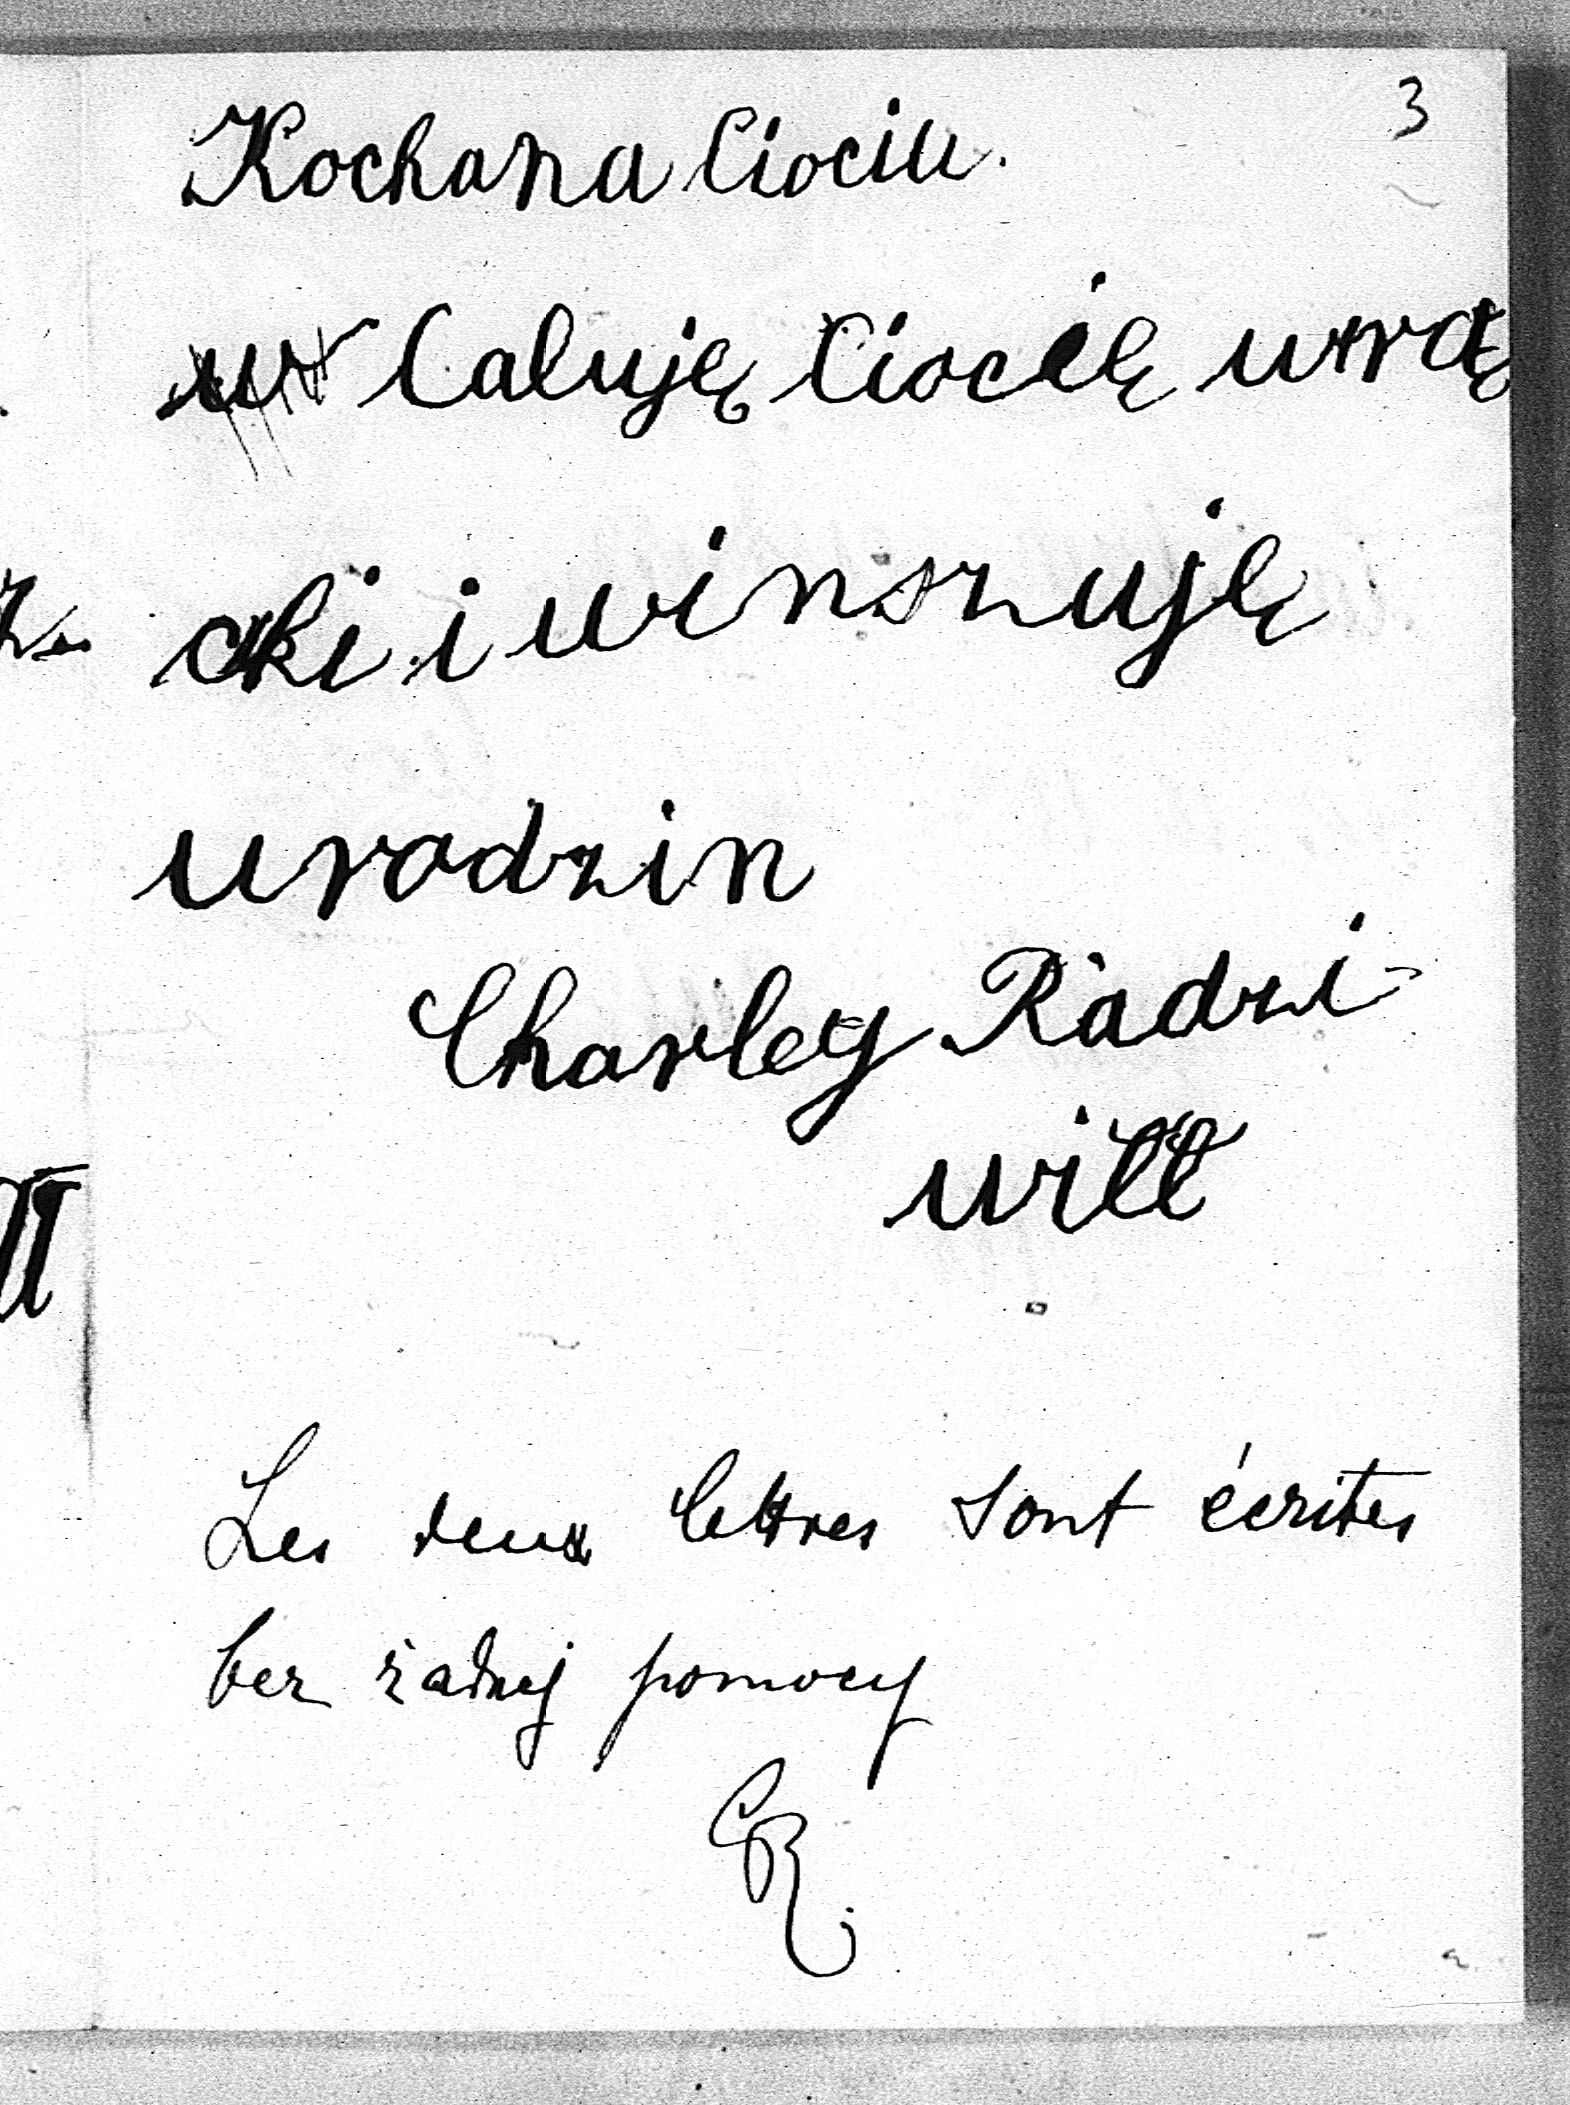 3
Kochana Ciociu.
Caluję Ciocię w rą
cki i winszuję
urodzin
Charley Radzi-
will
Les deux lettres sont écrites
bez żadnej pomocy
CR.